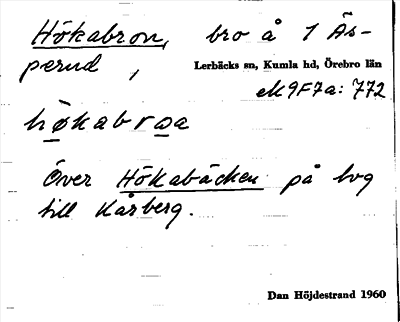 Hökabron, bro å 1 Äs-
perud,
Lerbäcks sn, Kumla hd, Örebro län
ek 9F7a: 772
hökabroa
Över Hökabäcken på lvg
till Kårberg.
Dan Höjdestrand 1960